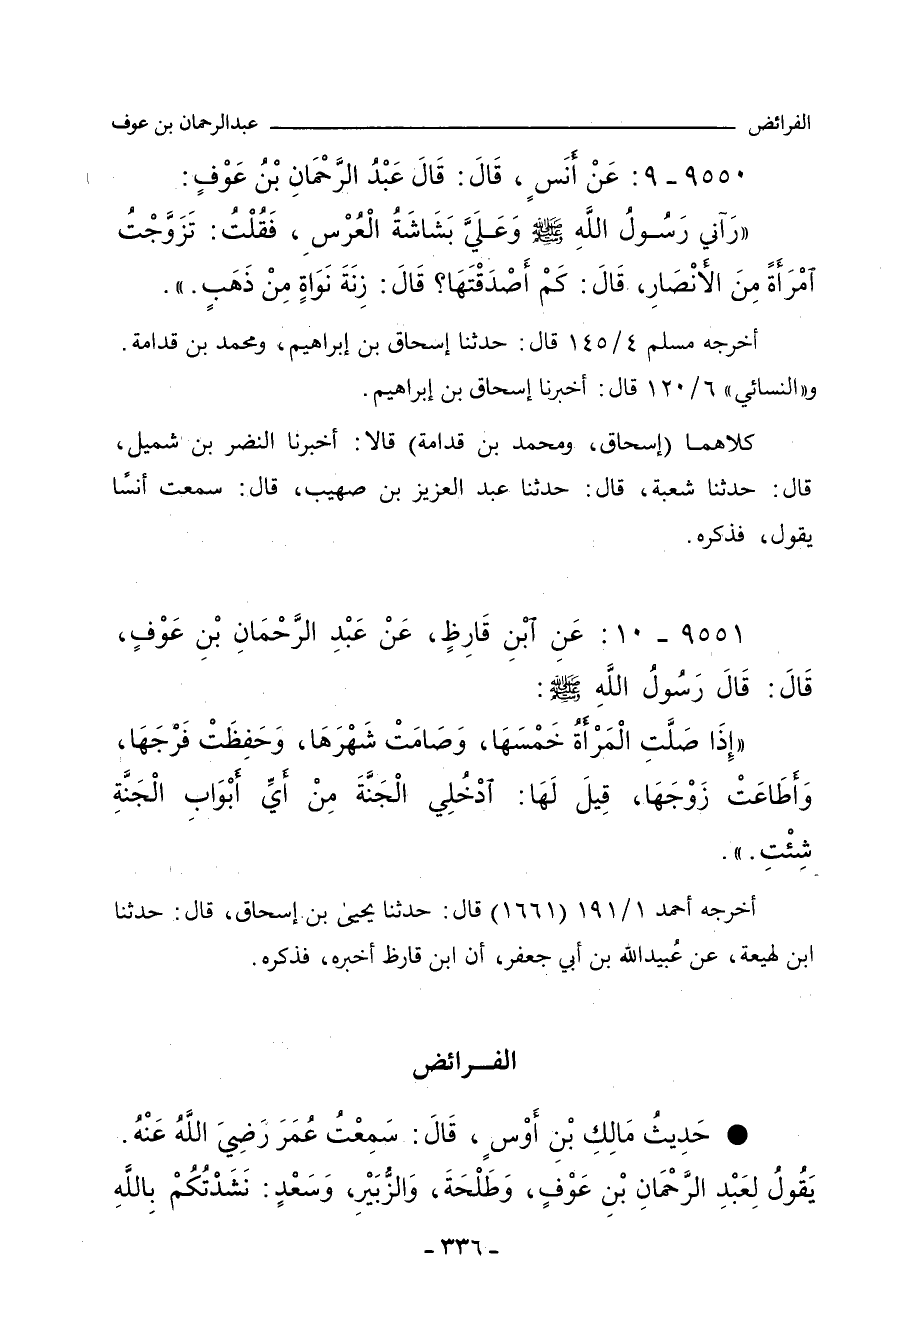 الفرائض ــــــــــــــــــــــــــــــــــــــــ عبدالرحمان بن عوف
٩٥٥٠ ـ ٩: عَنْ أَنَسٍ، قَالَ: قَالَ عَبْدُ الرَّحْمَانِ بْنُ عَوْفٍ:
«رَآنِي رَسُولُ اللَّهِ ﷺ وَعَلَيَّ بَشَاشَةُ الْعُرْسِ، فَقُلْتُ: تَزَوَّجْتُ
ٱمْرَأَةً مِنَ الْأَنْصَارِ، قَالَ: كَمْ أَصْدَقْتَهَا؟ قَالَ: زِنَةَ نَوَاةٍ مِنْ ذَهَبٍ.».
أخرجه مسلم ٤/١٤٥ قال: حدثنا إسحاق بن إبراهيم، ومحمد بن قدامة.
و«النسائي» ٦/١٢٠ قال: أخبرنا إسحاق بن إبراهيم.
كلاهما (إسحاق، ومحمد بن قدامة) قالا: أخبرنا النضر بن شميل،
قال: حدثنا شعبة، قال: حدثنا عبد العزيز بن صهيب، قال: سمعت أنسًا
يقول، فذكره.
٩٥٥١ ـ ١٠: عَنِ ٱبْنِ قَارِظٍ، عَنْ عَبْدِ الرَّحْمَانِ بْنِ عَوْفٍ،
قَالَ: قَالَ رَسُولُ اللَّهِ ﷺ:
«إِذَا صَلَّتِ الْمَرْأَةُ خَمْسَهَا، وَصَامَتْ شَهْرَهَا، وَحَفِظَتْ فَرْجَهَا،
وَأَطَاعَتْ زَوْجَهَا، قِيلَ لَهَا: ٱدْخُلِي الْجَنَّةَ مِنْ أَيِّ أَبْوَابِ الْجَنَّةِ
شِئْتِ.».
أخرجه أحمد ١/١٩١ (١٦٦١) قال: حدثنا يحيىٰ بن إسحاق، قال: حدثنا
ابن لهيعة، عن عُبيدالله بن أبي جعفر، أن ابن قارظ أخبره، فذكره.
الفــرائض
● حَدِيثُ مَالِكِ بْنِ أَوْسٍ، قَالَ: سَمِعْتُ عُمَرَ رَضِيَ اللَّهُ عَنْهُ.
يَقُولُ لِعَبْدِ الرَّحْمَانِ بْنِ عَوْفٍ، وَطَلْحَةَ، وَالزُّبَيْرِ، وَسَعْدٍ: نَشَدْتُكُمْ بِاللَّهِ
- ٣٣٦ -